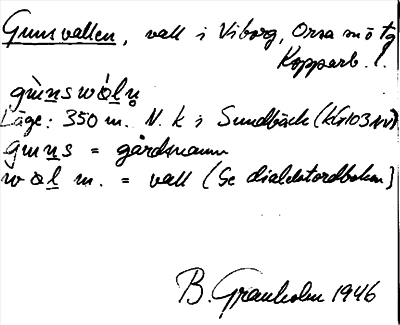 Gunsvallen, vall i Viborg, Orsa sn ö tg
Kopparb. l.
gùn̲swòl̲n̥
Läge: 350 m. N. k i Sundbäck (Kr103NV)
gun̲s = gårdsnamn
wòl̲ m. = vall (Se dialektordboken)
B. Granholm 1946